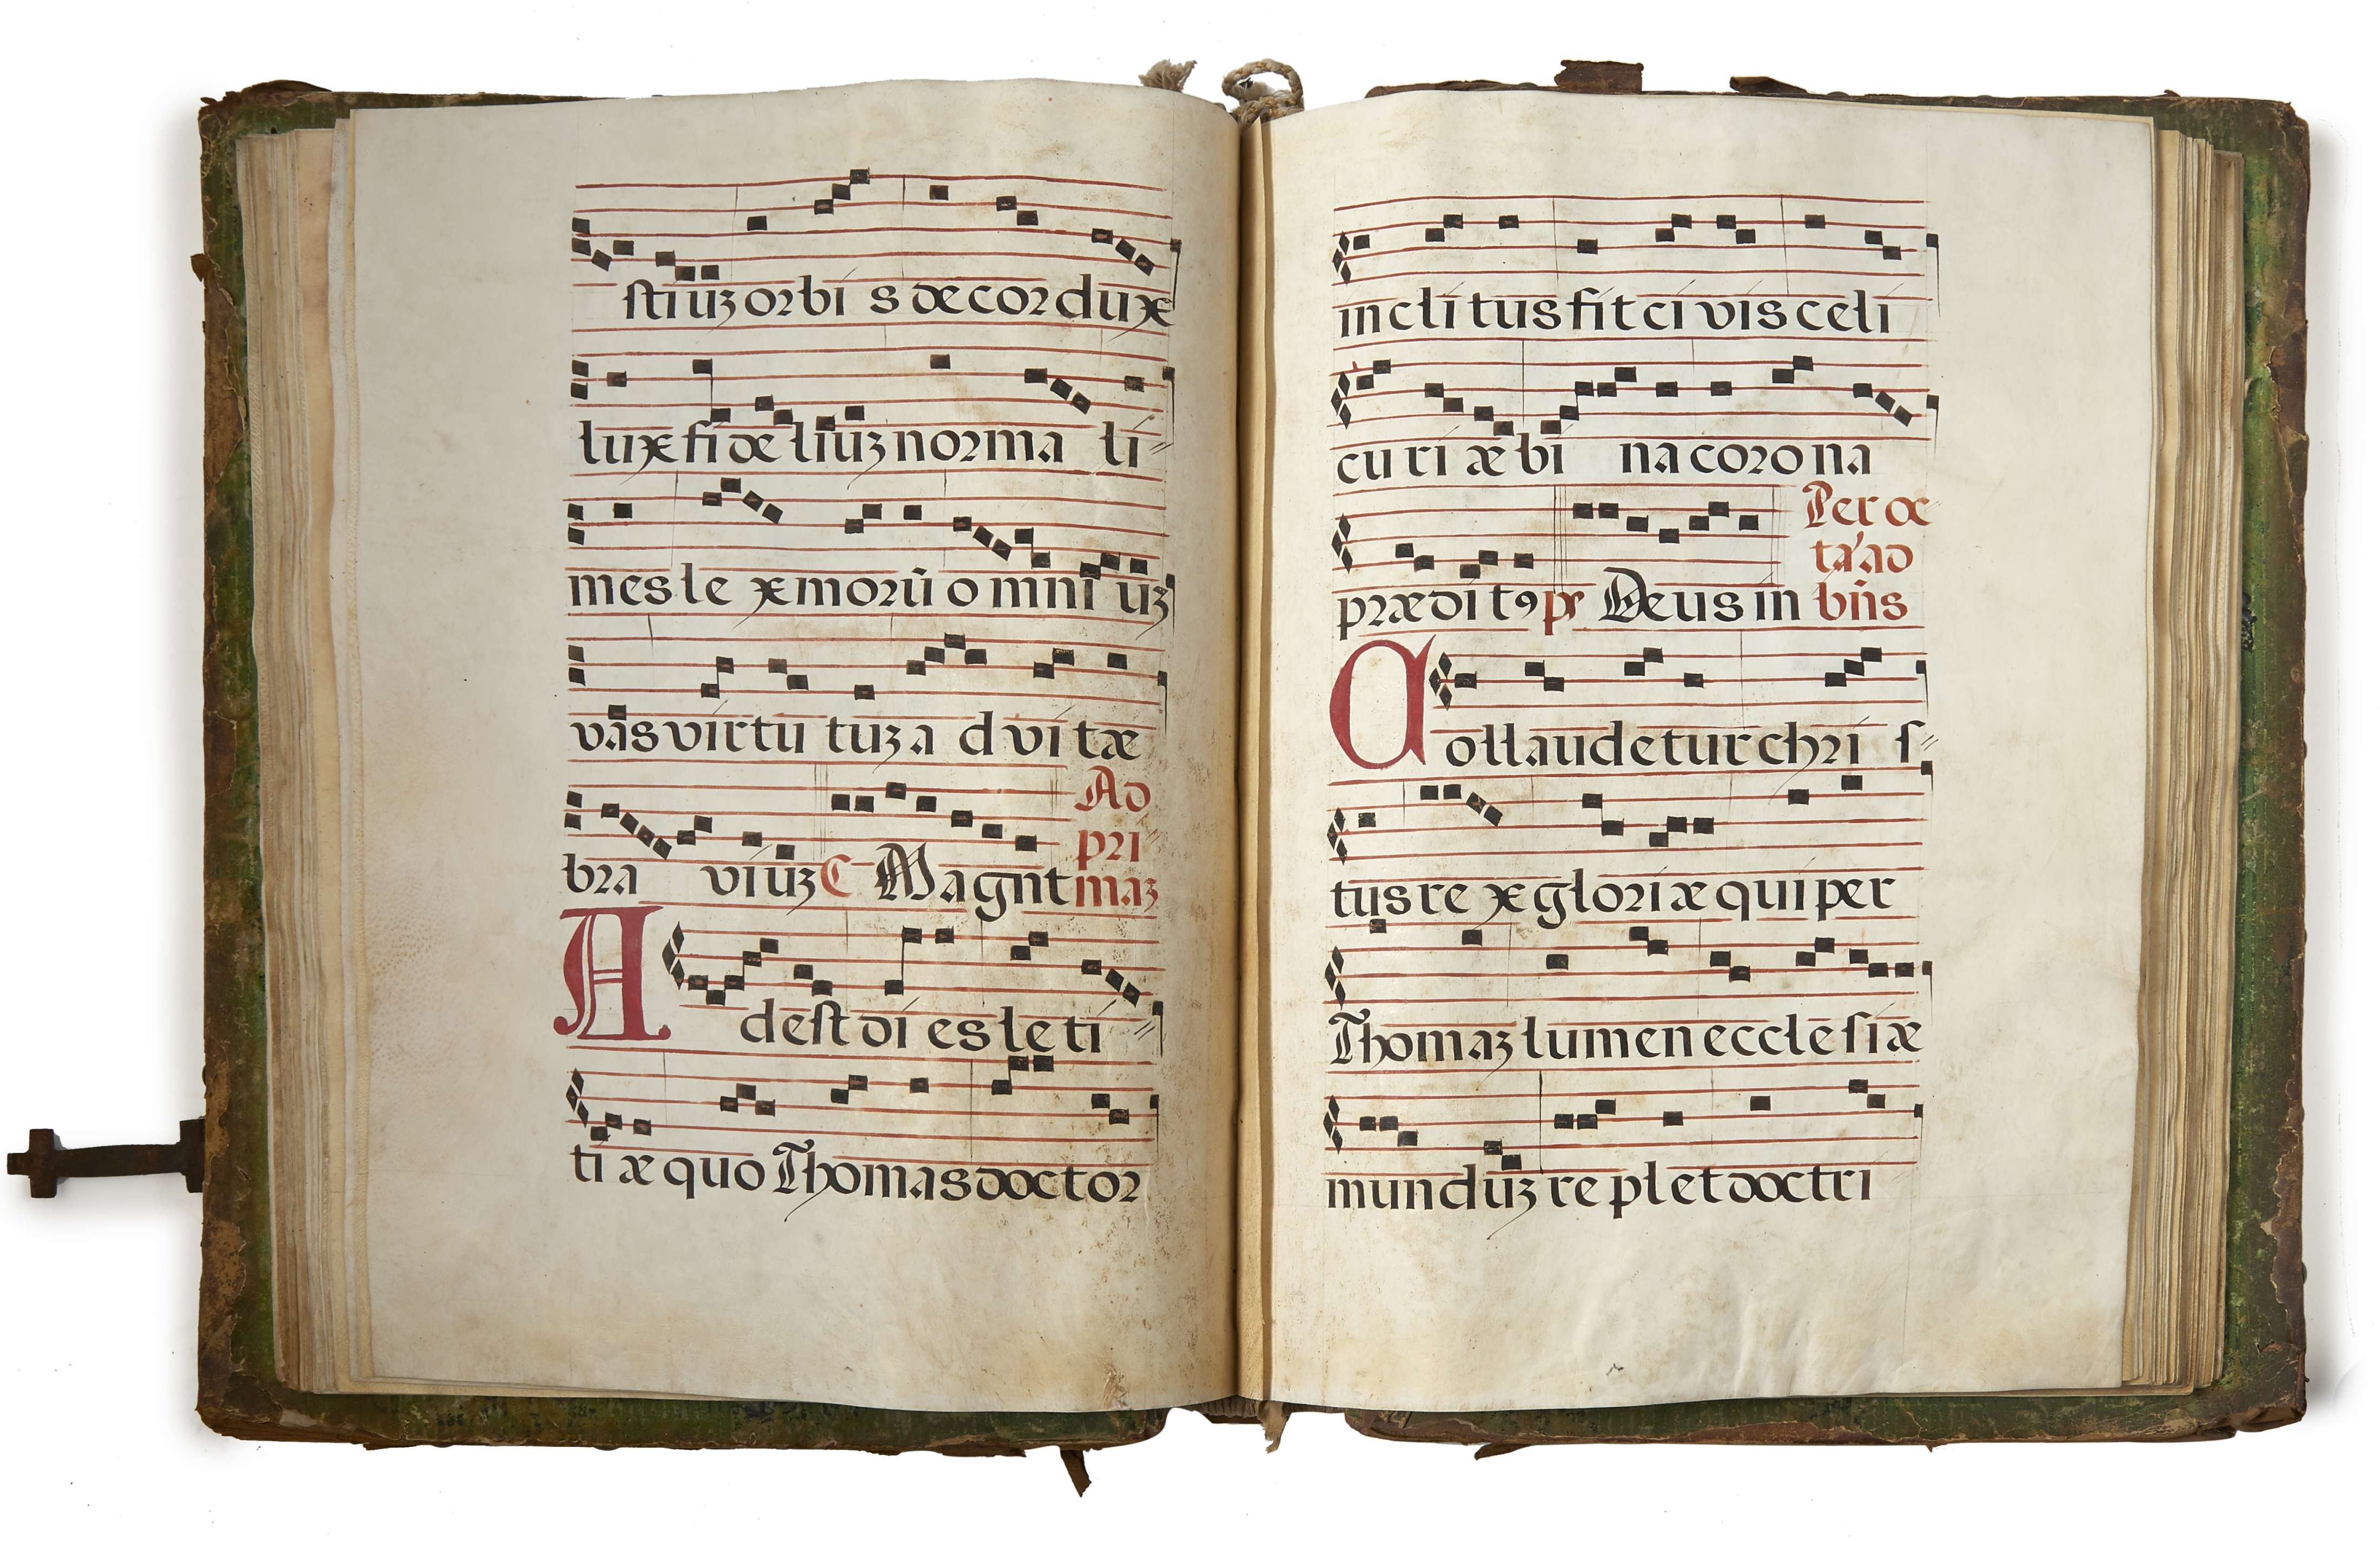 stiuʒ orbi s decor dux
lux fi de liuʒ norma li
mes le x morū o mni uʒ
vas virtu tuʒ a d vi tæ
bra viuʒ C Magnt
Ad
pri
maʒ
A dest di es le ti
ti æ quo Thomas doctor
in cli tus fit ci vis celi
cu ri æ bi na coro na
prædi tꝯ ps Deus in
Per oc
ta' ad
bñs
Collaudetur chri s
tus re x gloriæ qui per
Thomaʒ lumen ecclesiæ
munduʒ re plet doctri